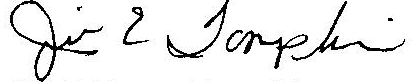 Jim E Tompkins